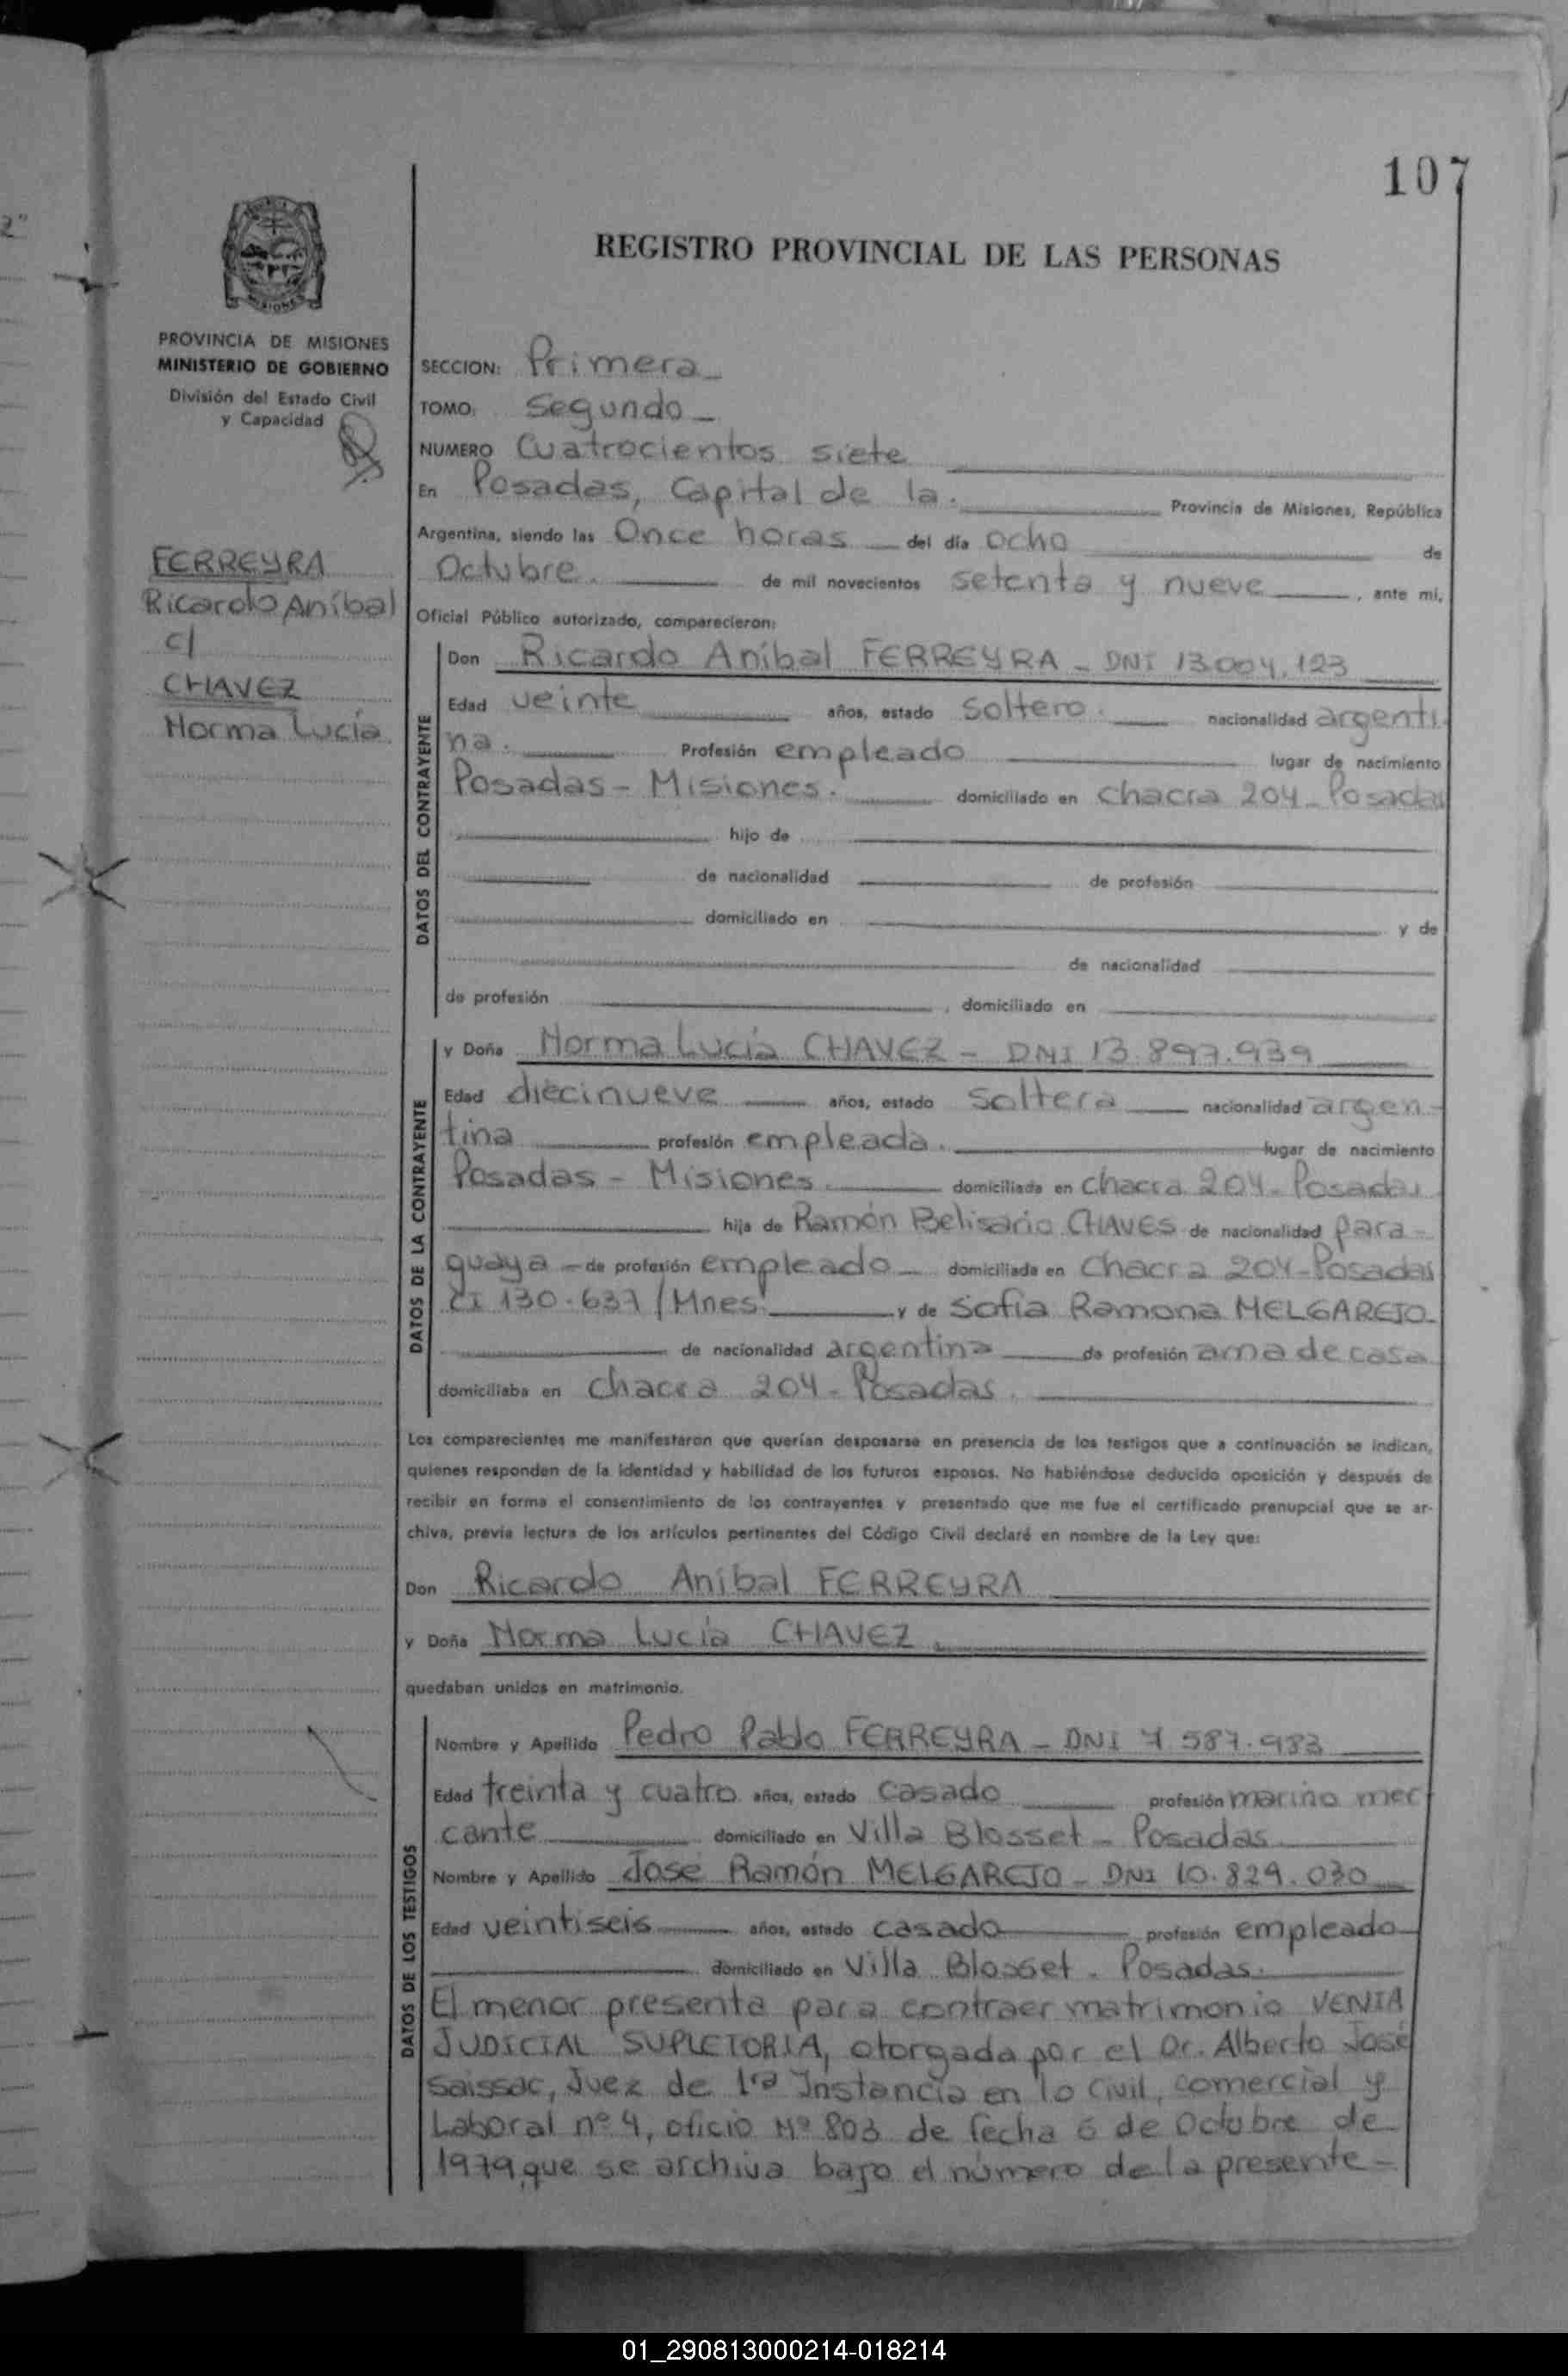 107
REGISTRO PROVINCIAL DE LAS PERSONAS
MISIONES
PROVINCIA DE MISIONES
MINISTERIO DE GOBIERNO
División del Estado Civil
y Capacidad
FERREYRA
Ricardo Aníbal
c/
CHAVEZ
Norma Lucía
SECCION: Primera
TOMO: Segundo
NUMERO Cuatrocientos siete
En Posadas, Capital de la. Provincia de Misiones, República
Argentina, siendo las Once horas del día ocho de
Octubre. de mil novecientos setenta y nueve, ante mi,
Oficial Público autorizado, comparecieron:
DATOS DEL CONTRAYENTE
Don Ricardo Aníbal FERREYRA - DNI 13.004.123
Edad veinte años, estado soltero. nacionalidad argenti
na. Profesión empleado lugar de nacimiento
Posadas - Misiones. domiciliado en chacra 204 - Posadas
hijo de
de nacionalidad de profesión
domiciliado en y de
de nacionalidad
de profesión , domiciliado en
DATOS DE LA CONTRAYENTE
y Doña Norma Lucía CHAVEZ - DNI 13.897.939
Edad diecinueve años, estado soltera nacionalidad argen-
tina profesión empleada. lugar de nacimiento
Posadas - Misiones. domiciliada en chacra 204 - Posadas
hija de Ramón Belisario CHAVES de nacionalidad para-
guaya - de profesión empleado domiciliada en Chacra 204 - Posadas
CI 130.637/Mnes. y de Sofía Ramona MELGAREJO
de nacionalidad argentina de profesión ama de casa
domiciliaba en chacra 204 - Posadas.
Los comparecientes me manifestaron que querían desposarse en presencia de los testigos que a continuación se indican,
quienes responden de la identidad y habilidad de los futuros esposos. No habiéndose deducido oposición y después de
recibir en forma el consentimiento de los contrayentes y presentado que me fue el certificado prenupcial que se ar-
chiva, previa lectura de los artículos pertinentes del Código Civil declaré en nombre de la Ley que:
Don Ricardo Aníbal FERREYRA
y Doña Norma Lucía CHAVEZ
quedaban unidos en matrimonio.
DATOS DE LOS TESTIGOS
Nombre y Apellido Pedro Pablo FERREYRA - DNI 7.587.983
Edad treinta y cuatro años, estado casado profesión marino mer
cante domiciliado en Villa Blosset - Posadas
Nombre y Apellido José Ramón MELGAREJO - DNI 10.829.030
Edad veintiseis años, estado casado profesión empleado
domiciliado en Villa Blosset - Posadas.
El menor presenta para contraer matrimonio VENIA
JUDICIAL SUPLETORIA, otorgada por el Dr. Alberto José
Saissac, Juez de 1ra Instancia en lo civil, comercial y
Laboral nº 4, oficio Nº 803 de fecha 6 de Octubre de
1979, que se archiva bajo el número de la presente -
01_290813000214-018214